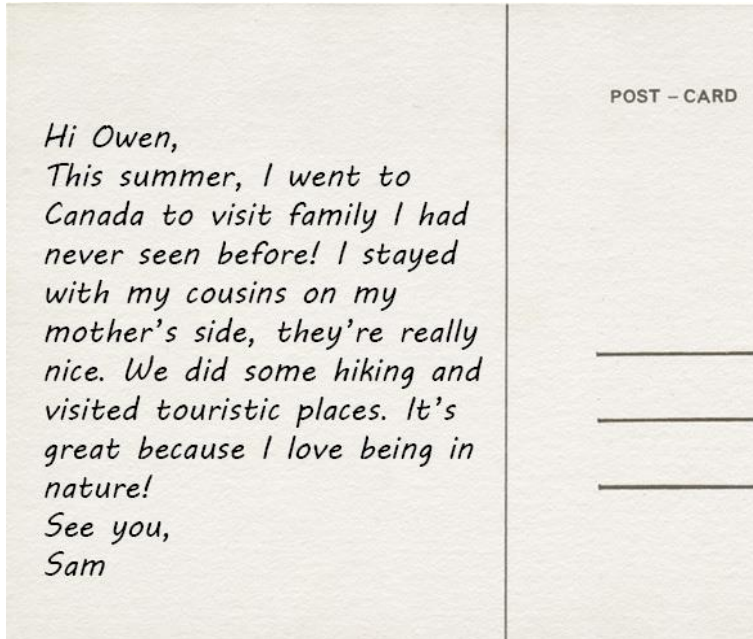 Hi Owen,
This summer, I went to
Canada to visit family I had
never seen before! I stayed
with my cousins on my
mother's side, they're really
nice. We did some hiking and
visited touristic places. It's
great because I love being in
nature!
See you,
Sam
POST – CARD